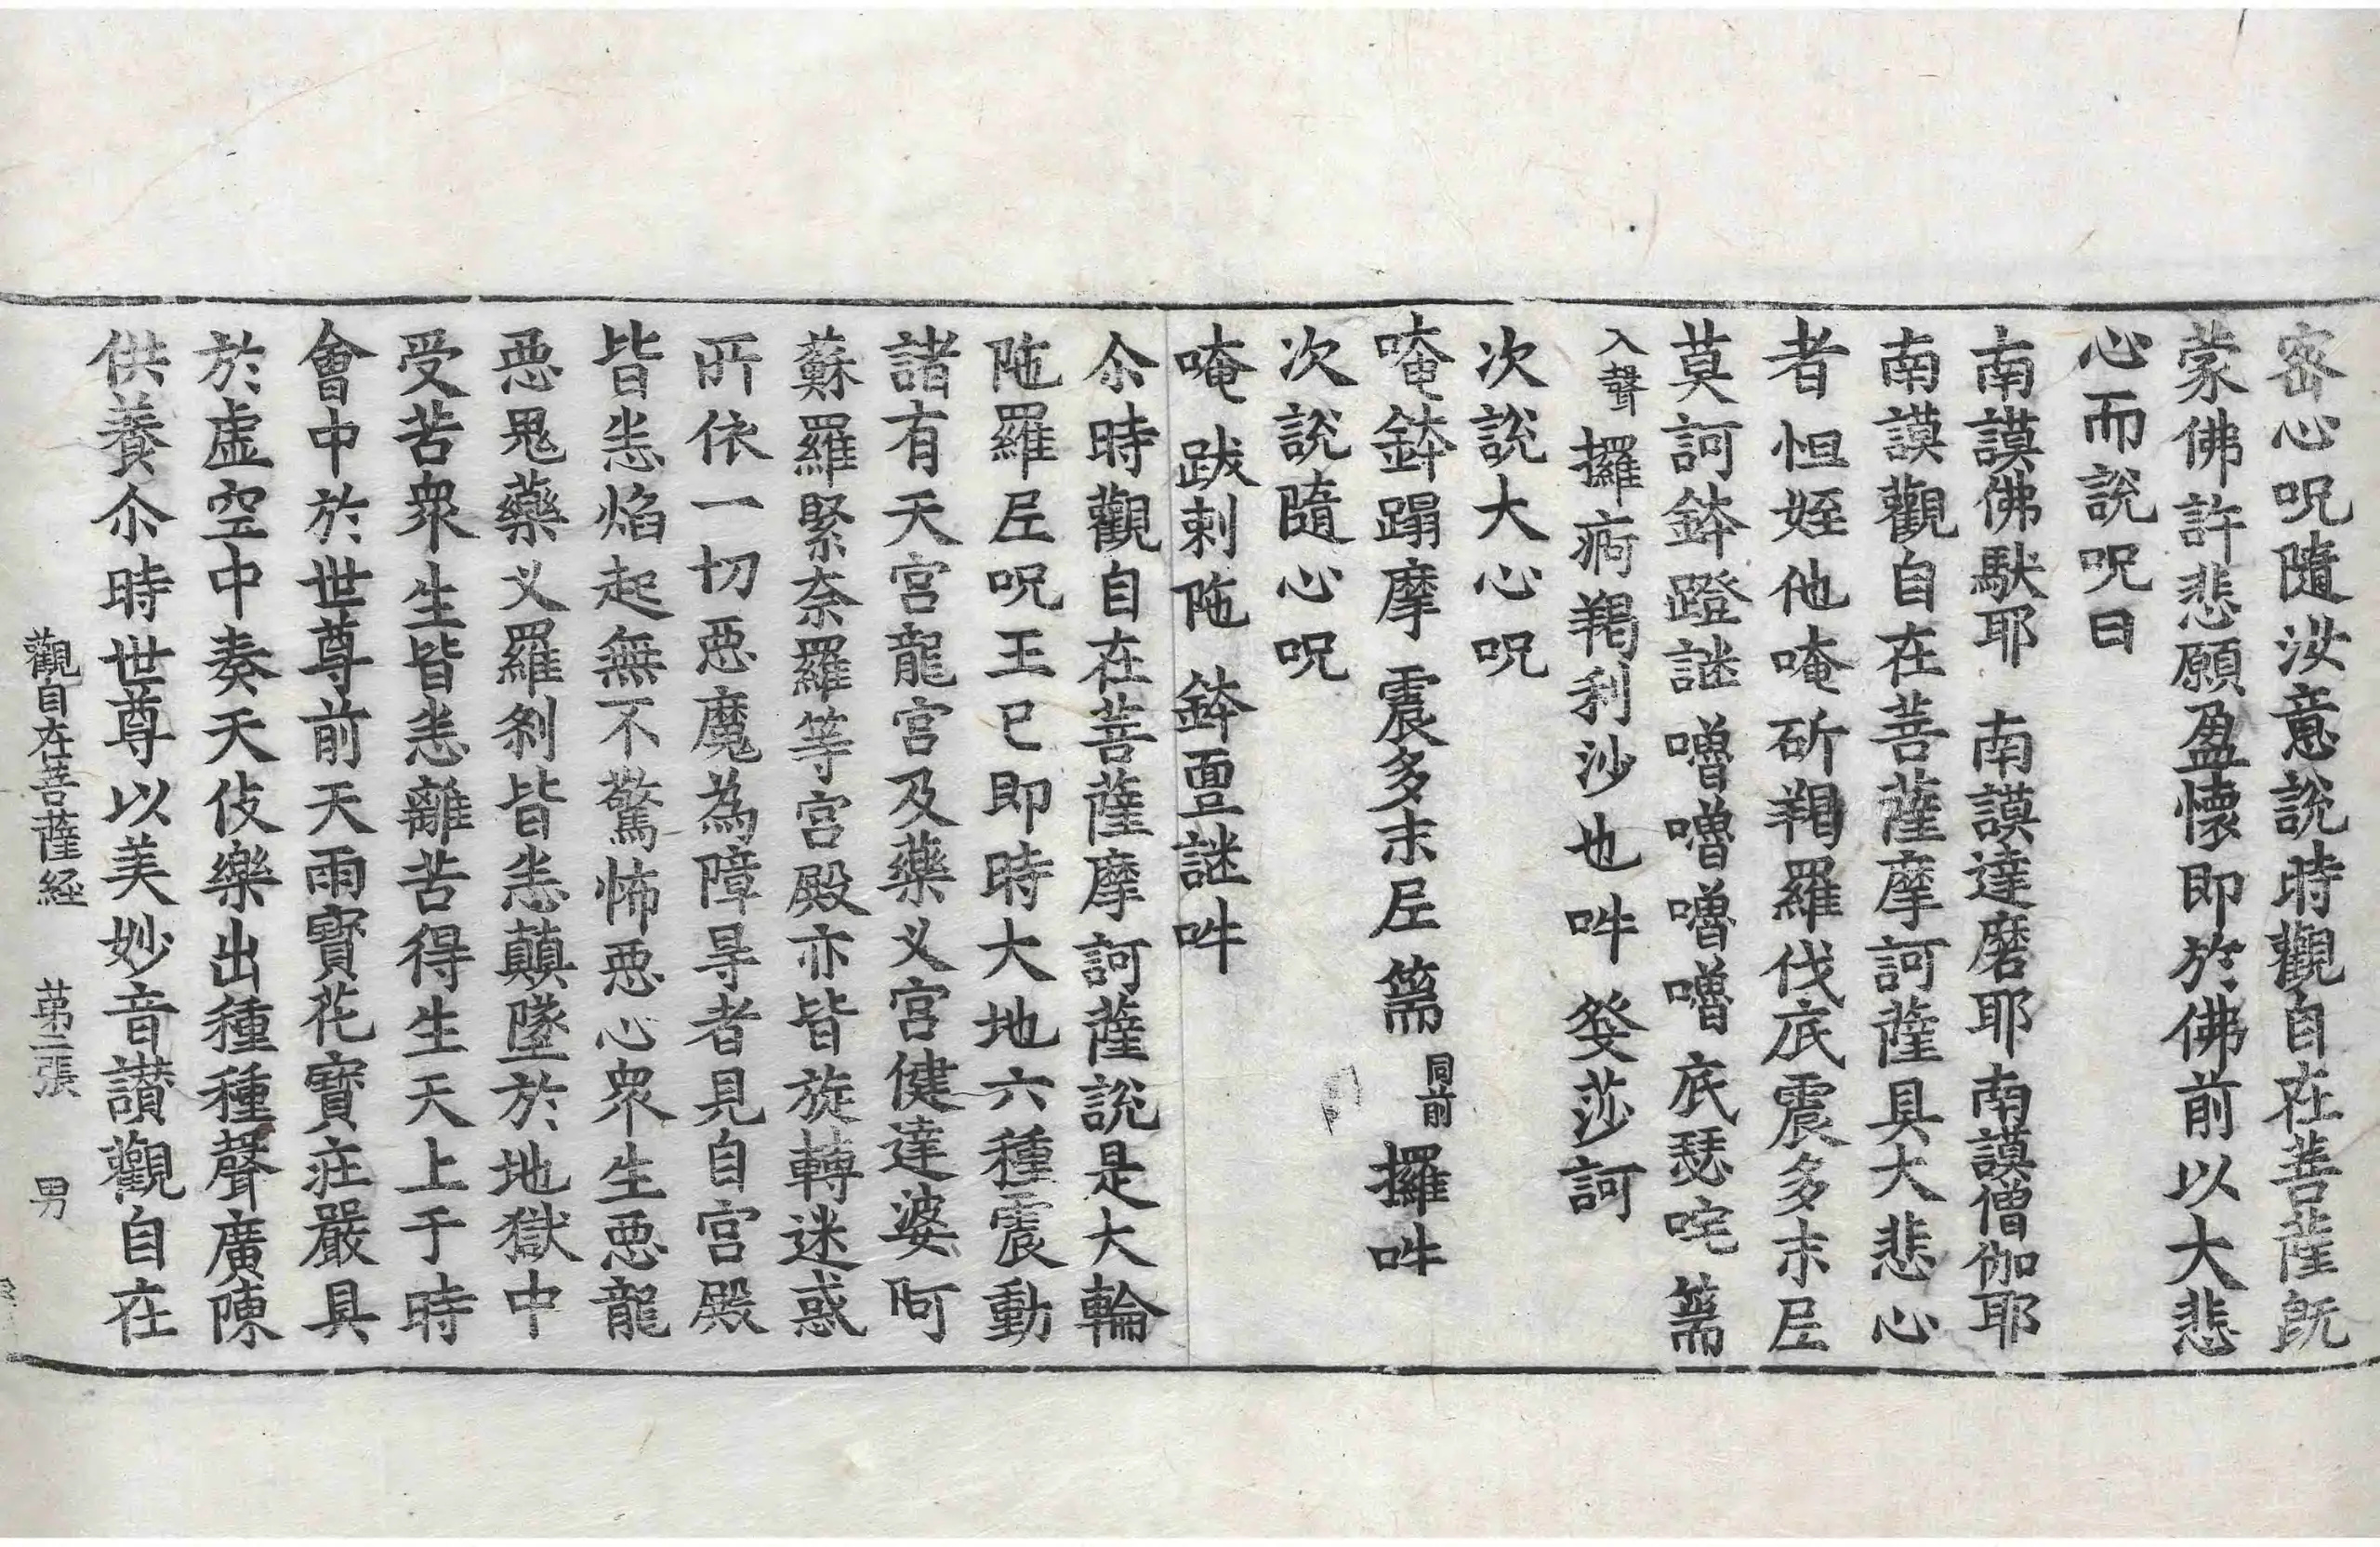 密心呪隨汝意說時觀自在菩薩旣
蒙佛許悲願盈懷即於佛前以大悲
心而說呪曰
南謨佛馱耶 南謨達磨耶 南謨僧伽耶
南謨觀自在菩薩摩訶薩具大悲心
者 怛姪他 唵 斫羯羅伐底 震多末尼
莫訶鉢蹬謎 嚕嚕嚕嚕 底瑟咤 篅
入聲 攞痾羯利沙也 吽 癹莎訶
次說大心呪
唵 鉢蹋摩 震多末尼 篅 同前 攞 吽
次說隨心呪
唵 跋剌陁 鉢亶謎 吽
尒時觀自在菩薩摩訶薩說是大輪
陁羅尼呪王已即時大地六種震動
諸有天宮龍宮及藥叉宮健達婆阿
蘇羅緊奈羅等宮殿亦皆旋轉迷惑
所依一切惡魔為障㝵者見自宮殿
皆悉焰起無不驚怖惡心衆生惡龍
惡鬼藥叉羅剎皆悉顛墜於地獄中
受苦衆生皆悉離苦得生天上于時
會中於世尊前天雨寶花寶莊嚴具
於虛空中奏天伎樂出種種聲廣陳
供養尒時世尊以美妙音讚觀自在
觀自在菩薩經 第三張 男